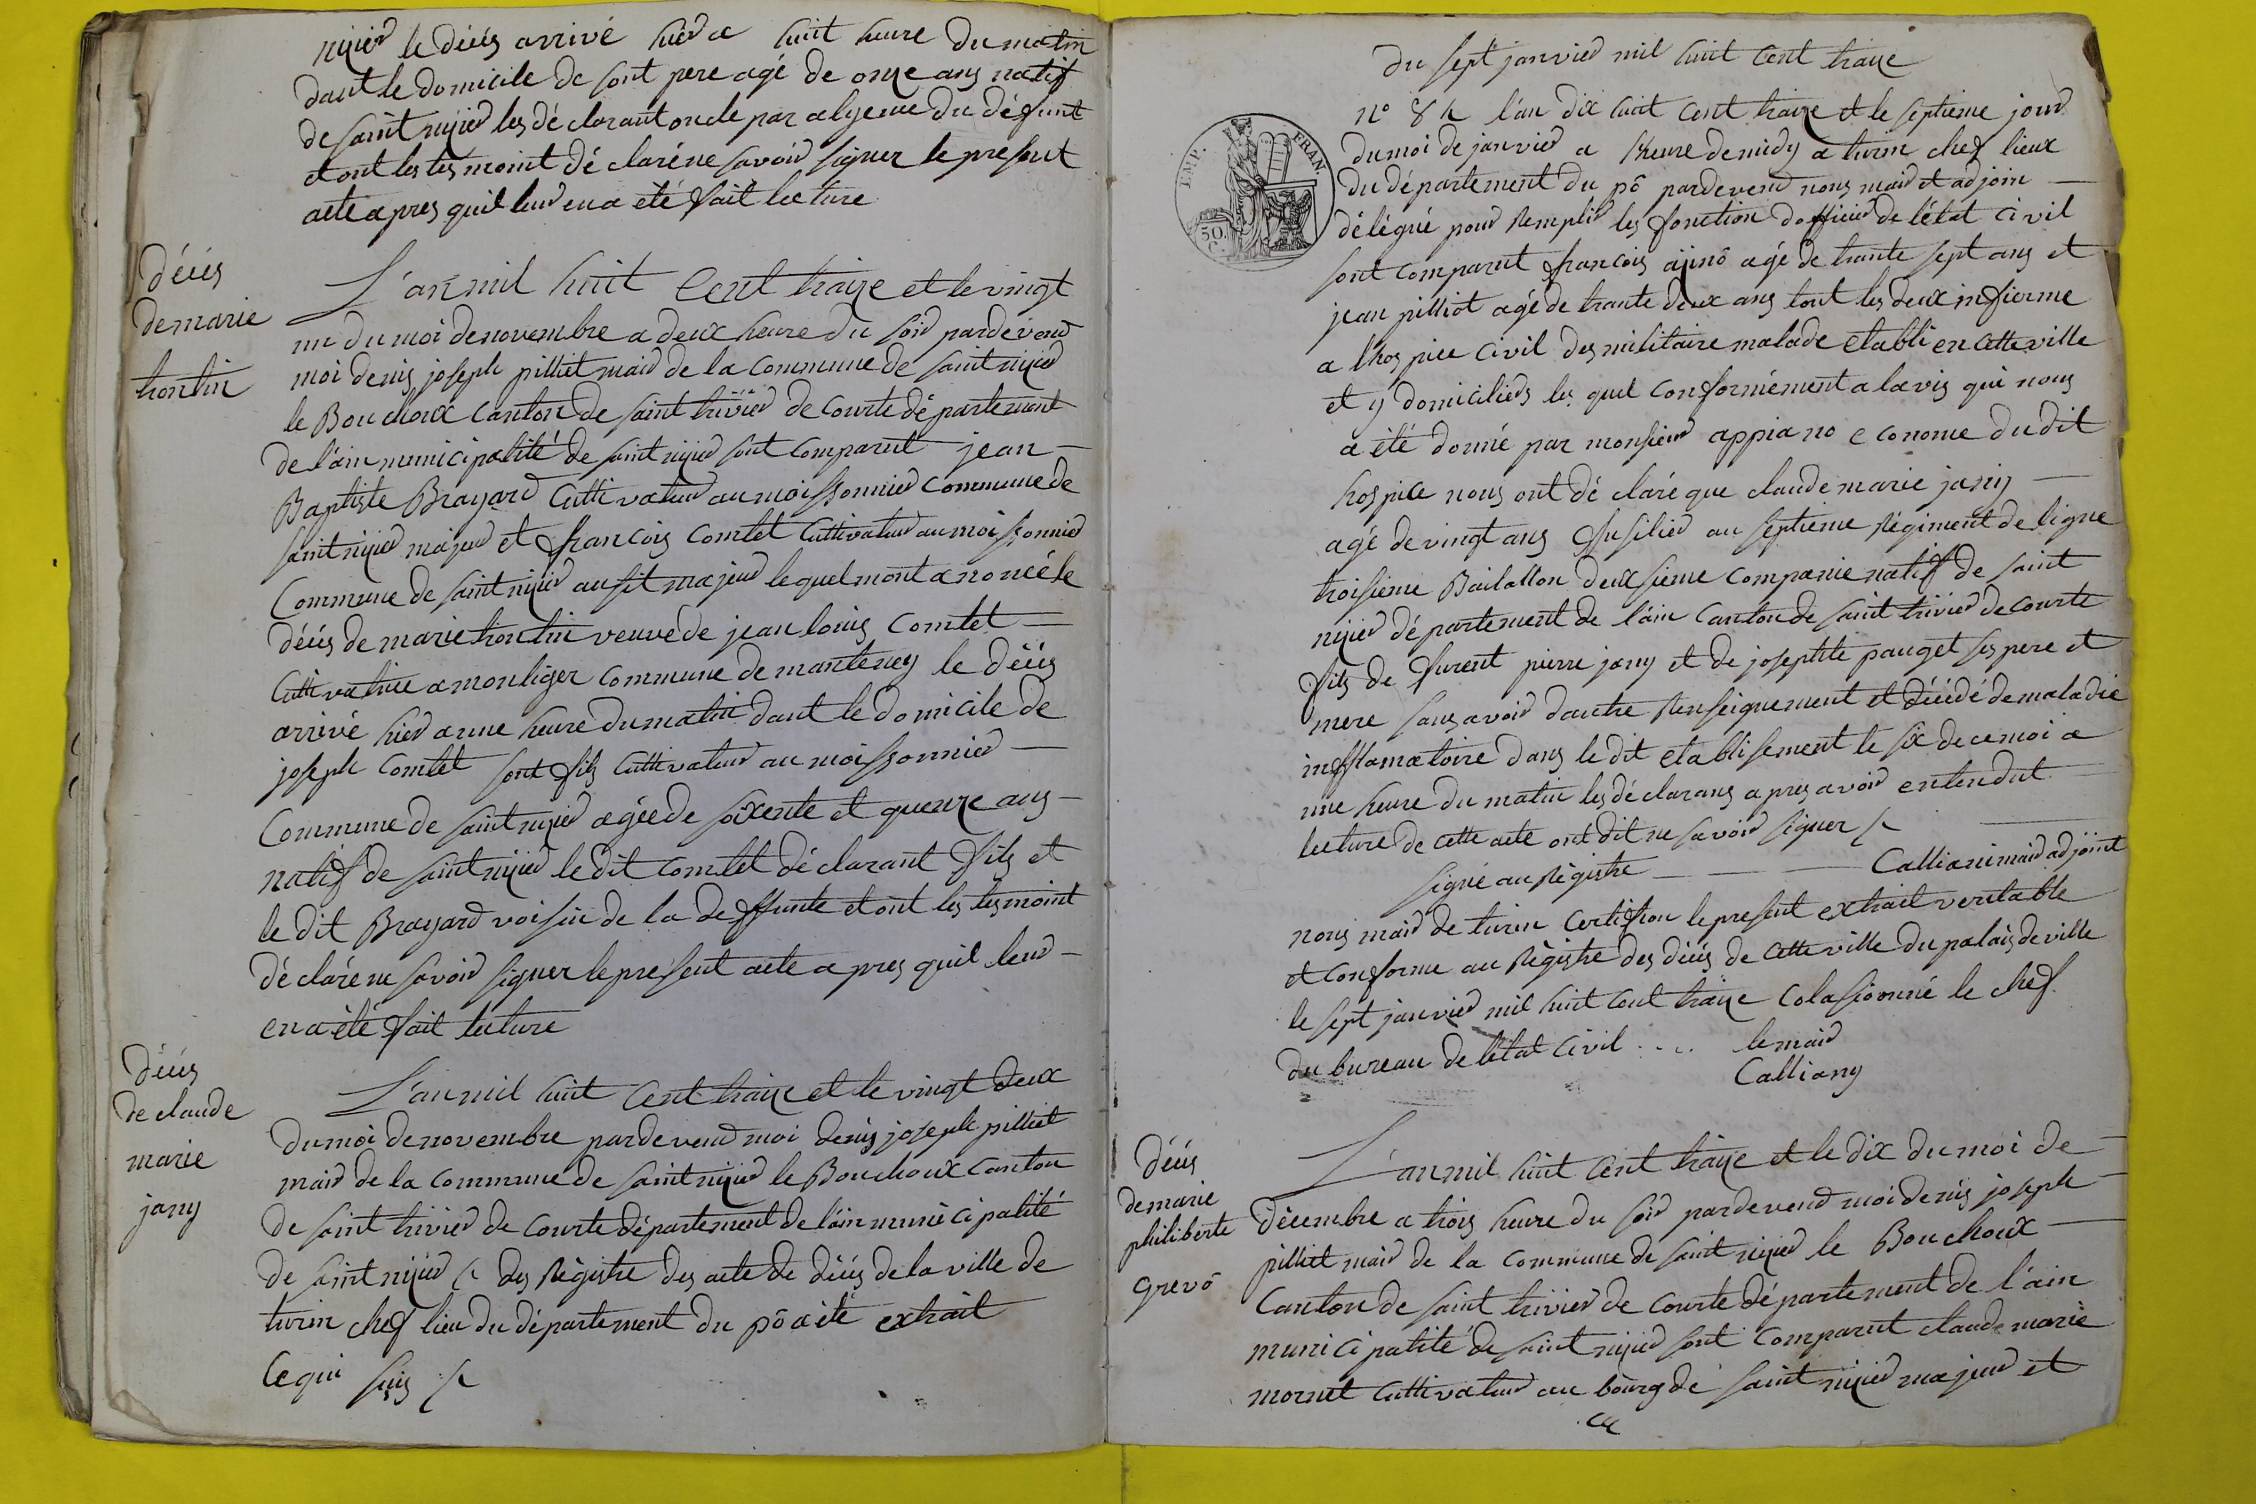 nizier le décés arrivé hier a huit heure du matin
dant le domicile de sont pere agé de onze ans natif
de saint nizier les déclarant oncle par alyence du défunt
et ont les tesmoint déclaré ne savoir signer le present
acte apres quil leur en a été fait lecture
décés
de marie
trontin
L'an mil huit Cent traize et le vingt
un du moi de novembre a deux heure du soir pardevend
moi denis joseph pilliet maire de la commune de saint nizier
le Bouchoux canton de saint trivier de courte département
de l'ain municipalité de saint nizier sont comparut jean
Baptiste Brayard Cultivateur au moissonnier commune de
saint nizier majeur et francois comtet Cultivateur au moissonnier
Commune de saint nizier ausit majeur lequel mont anoncé le
décés de marie trontin veuve de jean louis comtet
Cultivatrice a montiger commune de manteney le décés
arrivé hier a une heure du matin dant le domicile de
joseph comtet sont fils Cultivateur au moissonnier
Commune de saint nizier agée de soixente et quenze ans
natif de saint nizier le dit comtet déclarant fils et
le dit Brayard voisin de la deffunte et ont les tesmoint
déclaré ne savoir signer le present acte apres quil leur
en a été fait lecture
décés
de claude
marie
jany
L'an mil huit Cent traize et le vingt deux
du moi de novembre pardevend moi denis joseph pilliet
maire de la commune de saint nizier le Bouchoux canton
de saint trivier de courte département de l'ain municipalité
de saint nizier des Régistre des acte de décés de la ville de
turin chef lieu du département du pô a eté extrait
Ce qui suis
du sept janvier mil huit cent traize
EMP. FRAN.
50 C.
n° 82 l'an dix huit cent traize et le septieme jour
du moi de janvier a l'heure de midy a turin chef lieux
du département du pô pardevend nous maire et adjoin
délégué pour Remplir les fonction dofficier de létat civil
sont comparut francois ajinô agé de trante sept ans et
jean pilliot agé de trante deux ans tout les deux infierme
a lhospice civil des militaire malade etabli en cette ville
et y domiciliers les quel conformément a lavis qui nous
a été donné par monsieur appiano econome du dit
hospice nous ont déclaré que claude marie jany
agé de vingt ans fusilier au septieme Régiment de ligne
troisieme Bailallon deuxsieme companie natif de saint
nizier département de l'ain canton de saint trivier de courte
fils de furent pierre jany et de josephte pauget ses pere et
mere sans avoir dautre Renseignement et décédé de maladie
inflamatoire dans le dit etablisement le six de ce moi a
une heure du matin les déclarans apres avoir entendut
lecture de cette acte ont dit ne savoir signer
signé au Régistre Calliani maire adjoint
nous maire de turin certifion le present extrait veritable
et conforme au Régistre des décés de cette ville du palais de ville
le sept janvier mil huit cent traize Colasionné le chef
du bureau de létat civil .... le maire
Calliany
décés
de marie
philiberte
grevô
L'an mil huit cent traize et le dix du moi de
décembre a trois heure du soir pardevend moi denis joseph
pilliet maire de la commune de saint nizier le Bouchoux
Canton de saint trivier de courte département de l'ain
municipalité de saint nizier sont comparut claude marie
mornet Cultivateur au bourg de saint nizier majeur et